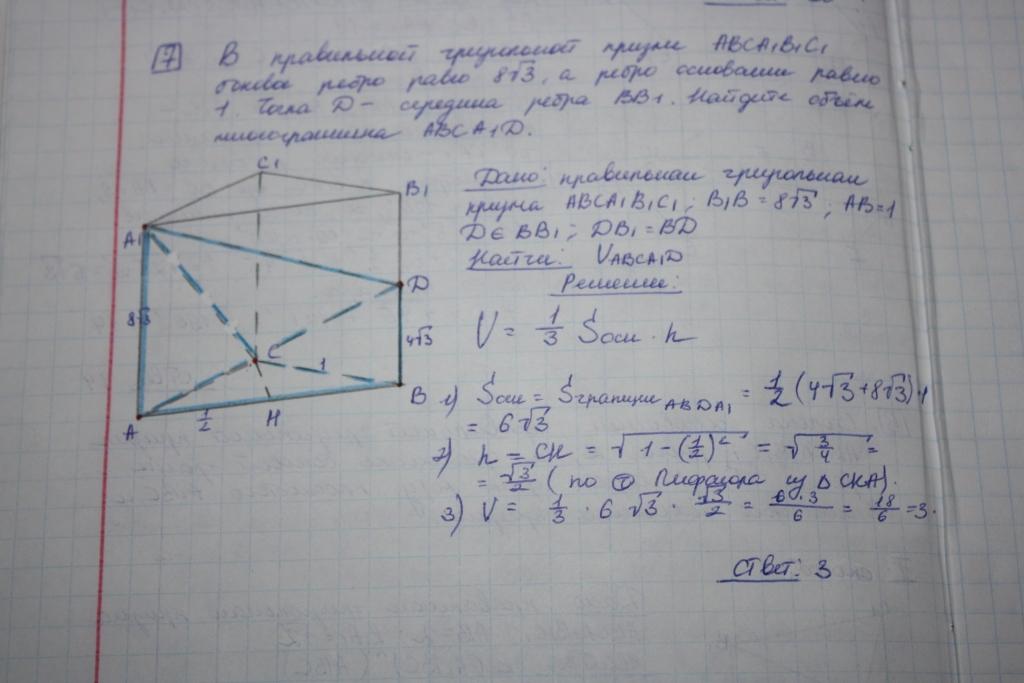 7 В правильной треугольной призме ABCA1B1C1
боковое ребро равно 8√3, а ребро основания равно
1. Точка D – середина ребра BB1. Найдите объём
многогранника ABCA1D.
C1
B1
A1
D
8√3
4√3
C
1
B
A
1/2
H
Дано: правильная треугольная
призма ABCA1B1C1; B1B = 8√3; AB=1
D∈BB1; DB1=BD
Найти: VABCA1D
Решение:
V = 1/3 Sосн · h
1) Sосн = Sтрапеции ABDA1 = 1/2 (4√3+8√3)·1
= 6√3
2) h = CH = √(1-(1/2)²) = √(3/4) =
= √3/2 ( по т Пифагора из Δ CHA).
3) V = 1/3 · 6√3 · √3/2 = 6·3/6 = 18/6 =3.
Ответ: 3